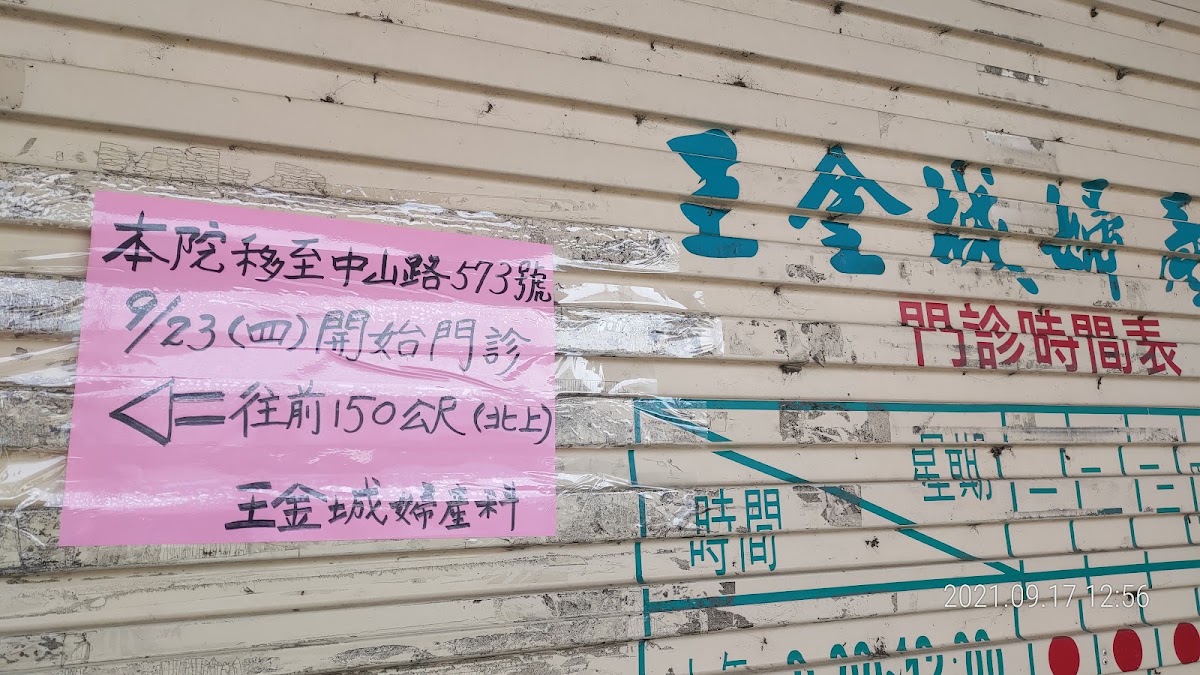 本院移至中山路573號
9/23(四)開始門診
往前150公尺(北上)
王金城婦產科
王金城婦
門診時間表
星期
一
二
時間
2021.09.17 12:56